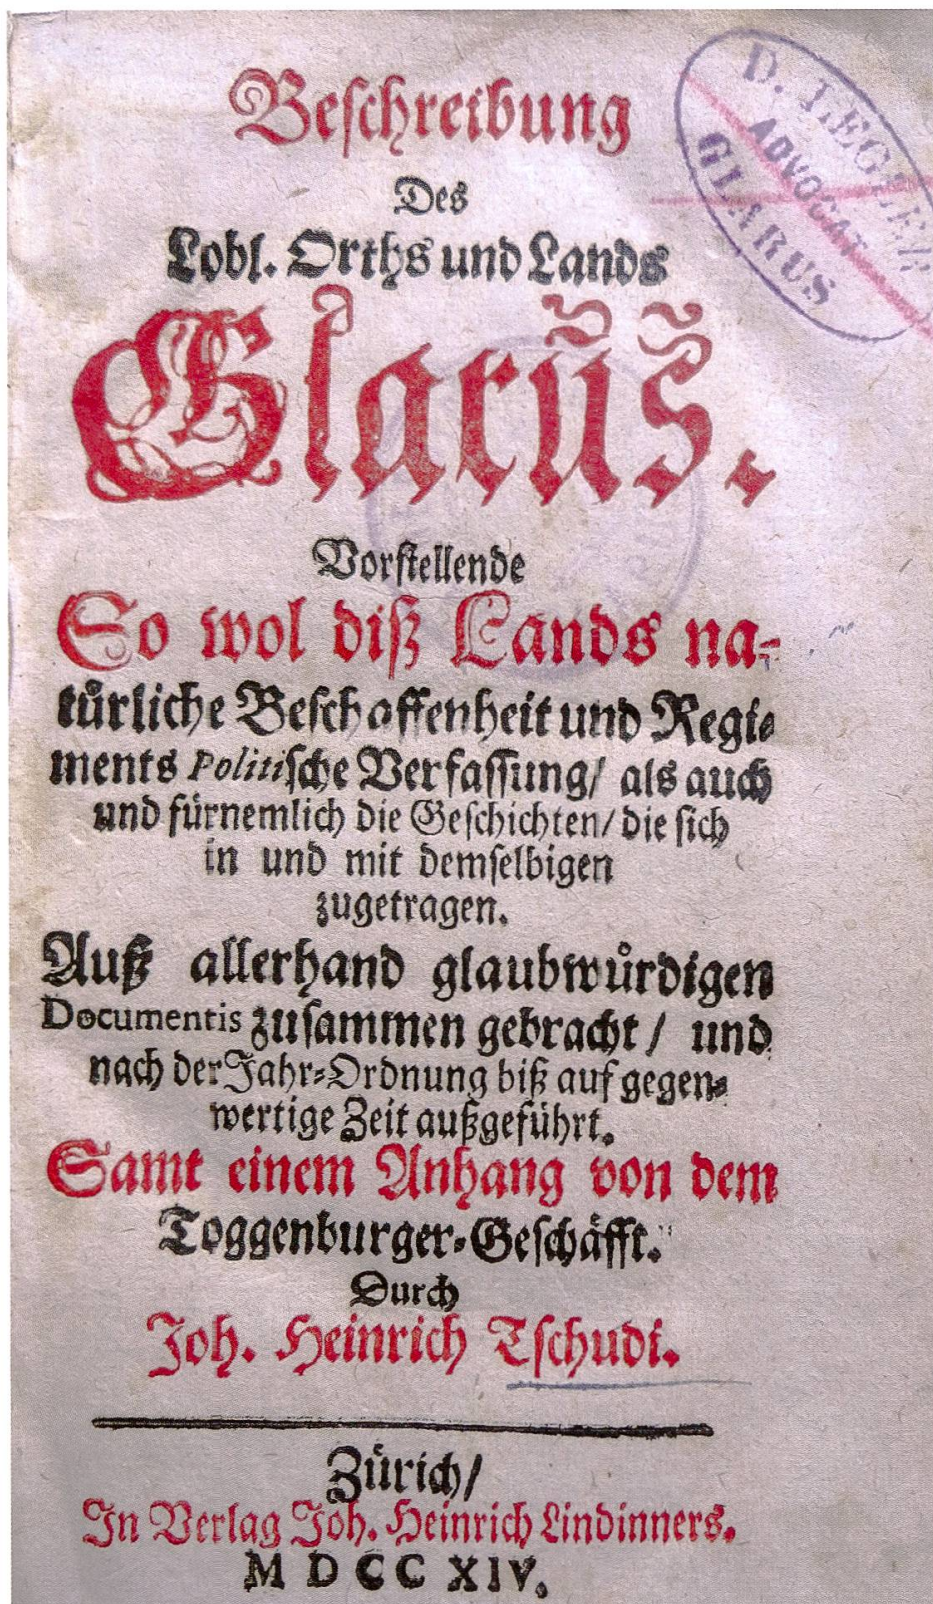 Beschreibung
Des
Lobl. Orths und Lands
Glarus.
Vorstellende
So wol diß Lands na-
túrliche Beschaffenheit und Regi-
ments Politische Verfassung/ als auch
und fürnemlich die Geschichten/ die sich
in und mit demselbigen
zugetragen.
Auß allerhand glaubwůrdigen
Documentis zusammen gebracht/ und
nach der Jahr-Ordnung biß auf gegen-
wertige Zeit außgeführt.
Samt einem Anhang von dem
Toggenburger-Geschäfft.
Durch
Joh. Heinrich Tschudi.
Zürich/
In Verlag Joh. Heinrich Lindinners.
MDCCXIV.
D. LEGLER
ADVOCAT
GLARUS